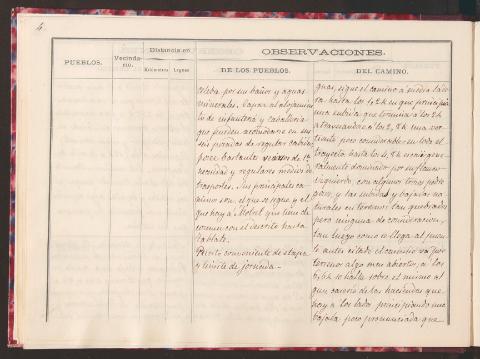 4.
OBSERVACIONES.
Distancia en
PUEBLOS.
Vecindario.
Kilómetros
Leguas
DE LOS PUEBLOS.
DEL CAMINO.
celeba por sus baños y aguas
minerales, capaz al alojamien
to de infantería y caballería
que pueden acomodarse en sus
seis posadas de regular cabida
posee bastantes recursos de 1ª
necesidad y regulares medios de
trasportes. Sus principales ca
minos son, el que se sigue y el
que hay a Motril que tiene de
comun con el descrito hasta
la
Punto conveniente de etapa
y límite de jornada.
guas, sigue el camino a media lade
ra hasta los 1,2 k en que principia
una subida que termina a los 2 k
atravesando a los 2,8 k una ver
tiente poco considerable en todo el
trayecto hasta los 4,8 k es en gene
ralmente dominado por su flanco
izquierdo, con algunos trozos pedre
gosos, y las subidas y bajadas na
turales en terrenos tan quebrados
pero ninguna de consideracion,
tan luego como se llega al puen
te antes citado el camino va por
terreno algo mas abierto, a los
6,6 k se halla sobre el mismo al
gun caserio de las haciendas que
hay a los lados principiando una
bajada poco pronunciada que